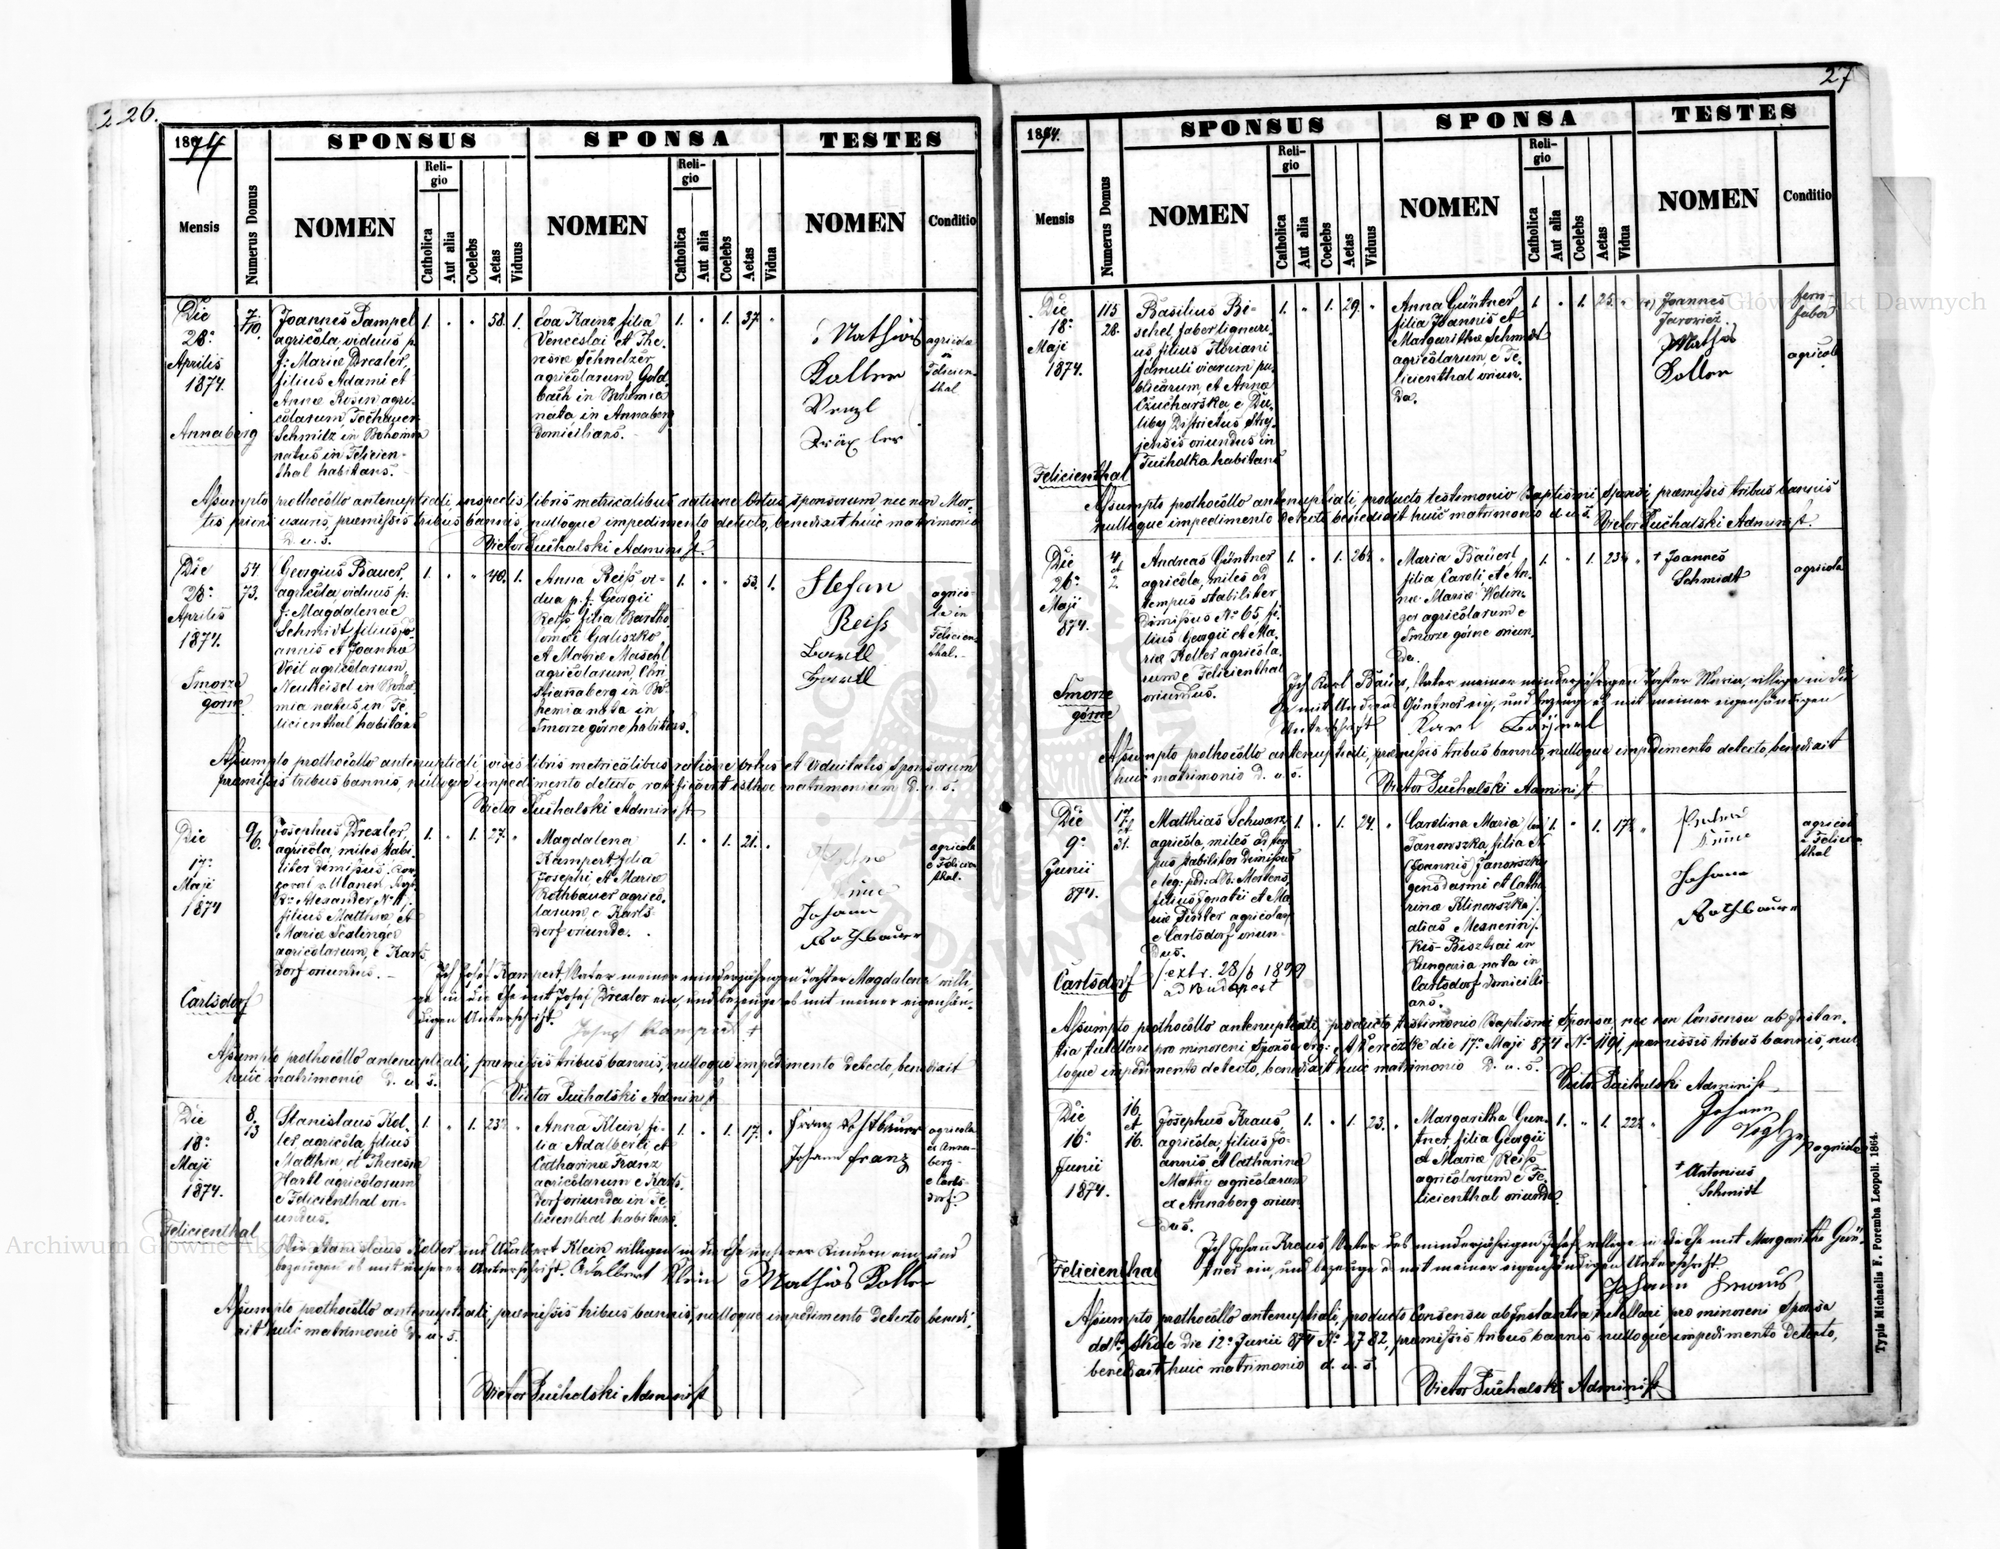 226.
1874
SPONSUS
SPONSA
TESTES
Mensis
Numerus Domus
NOMEN
Religio
Catholica
Aut alia
Coelebs
Aetas
Viduus
NOMEN
Religio
Catholica
Aut alia
Coelebs
Aetas
Vidua
NOMEN
Conditio
Die
28ª
Aprilis
1874.
Annaberg
7/10.
Joannes Pampel
agricola, viduus p.
f: Mariæ Drexler,
filius Adami et
Annæ Rosin agri-
colarum,
Schmitz in Bohemia
natus in Felicien-
thal habitans.
1. " " 58. 1.
Eva Kainz filia
Venceslai et The-
resiæ Schnelzer
agricolarum, Gold-
bach in Bohemia
nata in Annaberg
domicilians.
1. " 1. 37. "
Mathias
Koller
Wenzl
Dräxler
agricolæ
in
Felicien-
thal
Assumpto prothocollo antenuptiali, inspectis libris metricalibus ratione Ortus sponsorum nec non Mor-
tis prioris uxoris, præmissis tribus bannis, nulloque impedimento detecto, benedixit huic matrimonio
d. u. s.
Victor Puchalski Administ.
Die
28ª
Aprilis
1874.
Smorze
gorne
54
73.
Georgius Bauer,
agricola viduus p:
f: Magdalenæ
Schmidt, filius Jo-
annis et Joannæ
Veit agricolarum,
in Bohe-
mia natus, in Fe-
licienthal habitans
1. " " 40. 1.
Anna Reiss vi-
dua p. f. Georgii
Reiss filia Bartho-
lomæi Galiszko
et Mariæ Maschl
agricolarum, Chri-
stianaberg in Bo-
hemia nata in
Smorze górne habitans.
1. " " 53. 1.
Stefan
Reiss
agrico-
læ in
Felicien-
thal.
Assumpto prothocollo antenuptiali visis libris metricalibus ratione ortus et Viduitatis Sponsorum
præmissis tribus bannis, nulloque impedimento detecto, ratificavit isthoc matrimonium D. u. s.
Victor Puchalski Administ
Die
17ª
Maji
1874
Carlsdorf
9/6.
Josephus Drexler,
agricola, miles stabi-
liter dimissus. Kor-
poral v. Uhanen
Alexander
filius Matthiæ et
Mariæ
agricolarum, e Karls-
dorf oriundus.
1. " 1. 27. "
Magdalena
Kampert filia
Josephi, et Mariæ
Rothbauer agrico-
larum, e Karls-
dorf oriunda.
1. " 1. 21. "
Johann
Rothbauer
agricolæ
e Felicien-
thal.
Ich Josef Kampert, Vater meiner minderjährigen Tochter Magdalena willi-
ge in die Ehe mit Josef Drexler ein, und bezeuge es mit meiner eigenhän-
digen Unterschrift.
Josef Kampert
Assumpto prothocollo antenuptiali, præmissis tribus bannis, nulloque impedimento detecto, benedixit
huic matrimonio D. u. s.
Victor Puchalski Administ
Die
18ª
Maji
1874.
Felicienthal
8.
13
Stanislaus Kol-
ler agricola filius
Matthiæ, et Theresiæ
Hartl agricolarum
e Felicienthal ori-
undus.
1. " 1. 23 "
Anna Klein fi-
lia Adalberti, et
Catharinæ Franz
agricolarum e Karls-
dorf oriunda in Fe-
licienthal habitans.
1. " 1. 17. "
Johann Franz
agricolæ
ex Anna-
berg
e Carls-
dorf.
Wir Stanislaus Koller und Adalbert Klein willigen in die Ehe unserer Kindern ein, und
bezeugen es mit unserer Unterschrift. Adalbert Klein Mathias Koller
Assumpto prothocollo antenuptiali, præmissis tribus bannis, nulloque impedimento detecto benedi-
xit huic matrimonio D. u. s.
Victor Puchalski Administ
27
1874.
SPONSUS
SPONSA
TESTES
Mensis
Numerus Domus
NOMEN
Religio
Catholica
Aut alia
Coelebs
Aetas
Viduus
NOMEN
Religio
Catholica
Aut alia
Coelebs
Aetas
Vidua
NOMEN
Conditio
Die
18ª
Maji
1874.
Felicienthal
115
28.
Basilius Bi-
schel, faber lignari-
us filius Floriani
famuli viarum pu-
blicarum, et Annæ
Czucharska e Du-
liby Districtus Stry-
jensis oriundus in
Tucholka habitans
1. " 1. 29. "
Anna Güntner
filia Joannis et
Margarithæ Schmidt
agricolarum, e Fe-
licienthal oriun-
da.
1. " 1. 25. "
Joannes
Jarowicz
Mathias
Koller
ferri
faber
agricola
Assumpto prothocollo antenuptiali, producto testimonio Baptismi Sponsi, præmissis tribus bannis
nulloque impedimento detecto benedixit huic matrimonio d. u. s. Victor Puchalski Administ.
Die
26ª
Maji
874.
Smorze
górne
4
et
2.
Andreas Güntner
agricola, miles ad
tempus stabiliter
dimissus Nº 65 fi-
lius Georgii et Ma-
riæ Koller agricola-
rum e Felicienthal
oriundus.
1. " 1. 26 "
Maria Bäuerl,
filia Caroli, et An-
næ Mariæ Wolin-
ger agricolarum e
Smorze górne oriun-
da.
1. " 1. 23 "
+ Joannes
Schmidt
agricola
Ich Karl Bäuer, Vater meiner minderjährigen Tochter Maria, willige in die
Ehe mit Andreas Güntner ein, und bezeuge es mit meiner eigenhändigen
Unterschrift Karl
Assumpto prothocollo antenuptiali, præmissis tribus bannis, nulloque impedimento detecto, benedixit
huic matrimonio D. u. s.
Victor Puchalski Administ
Die
9ª
Junii
874.
Carlsdorf
17
et
31.
Matthias Schwarz
agricola, miles ad tem-
pus stabiliter dimissus
filius Ignatii et Ma-
riæ Pintler agricolarum
e Carlsdorf oriun-
dus.
extr. 28/6 1899
ad Budapest
1. " 1. 24. "
Carolina Maria
Janowszka, filia
(Joannis) Janowszky
gensdarmi et Catha-
rinæ Klinowszka/:
alias Mesnerin/:
Kis-Bisztrai in
Hungaria nata in
Carlsdorf domicili-
ans.
1. " 1. 17 "
Johann
Rothbauer
agricolæ
e Felicien-
thal
Assumpto prothocollo antenuptiali, producto, testimonio Baptismi Sponsa, nec non Consensu ab Instan-
tia tutellari pro minoreni Sponsa die 17ª Maji 874 Nº 1191, præmissis tribus bannis, nul-
loque impedimento detecto, benedixit huic matrimonio D. u. s. Victor Puchalski Administ
Die
16ª
Junii
1874.
Felicienthal
16.
et
16.
Josephus Kraus,
agricola, filius Jo-
annis et Catharinæ
Mathy agricolarum
ex Annaberg oriun-
dus.
1. " 1. 23. "
Margaritha Gün-
tner filia Georgii
et Mariæ Reiss
agricolarum e Fe-
licienthal oriunda
1. " 1. 22 "
Johann
+ Antonius
Schmidt
agricolæ
Ich Johann Kraus Vater des minderjährigen Josef willige in die Ehe mit Margaritha Gün-
tner ein, und bezeuge es mit meiner eigenhändigen Unterschrift.
Johann Kraus
Assumpto prothocollo antenuptiali, producto Consensu ab Instantia tutellari, pro minoreni Sponsa
ddto Skole die 12ª Junii 874 Nº 2782, præmissis tribus bannis nulloque impedimento detecto,
benedixit huic matrimonio d. u. s.
Victor Puchalski Administ
Typis Michaelis F. Poremba Leopoli. 1864.
Archiwum Główne Akt Dawnych
Archiwum Główne Akt Dawnych